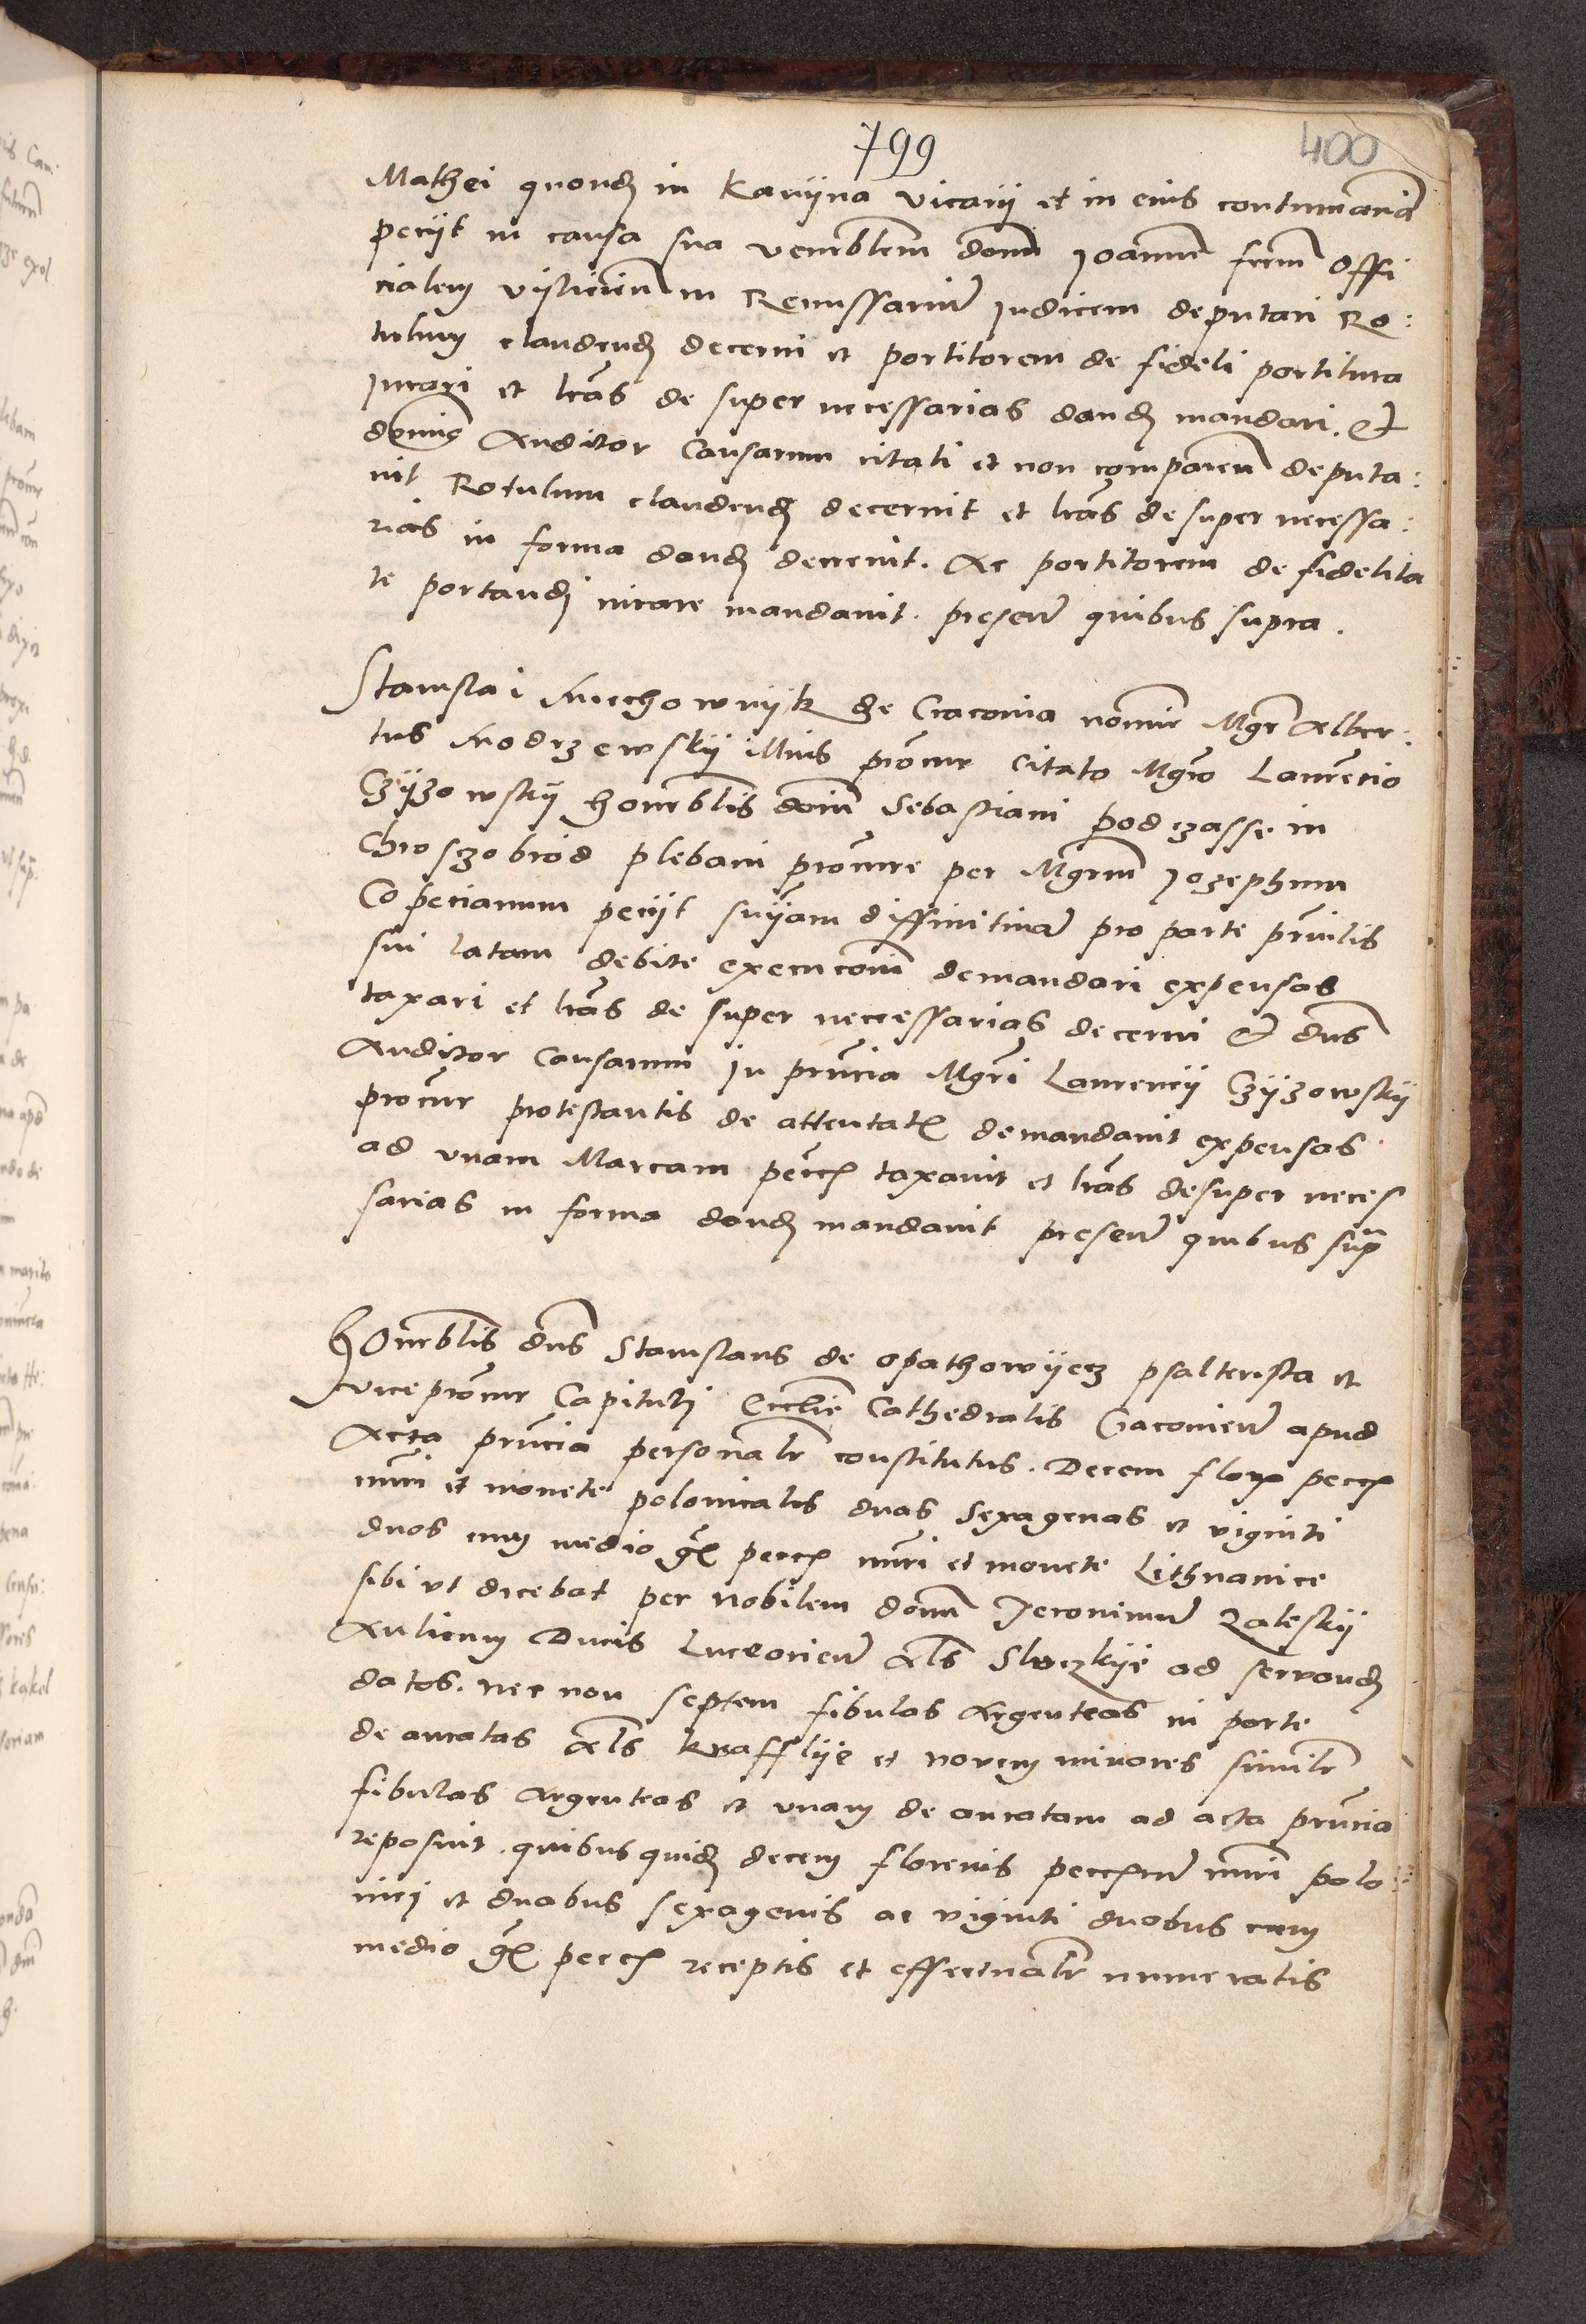 799
400
Mathei quond in Karvijna vicarij et in eius contumacia
pecijt in causa sua venerblem domi Joannem ferm Offi
cialem vislicien in Remissariu Judicem deputari Ro:
tulum claudend decerni et portitorem de fideli portitura
Jurari et lras de super necessarias dand mandari. Et
dominus Auditor Causarum citati et non comparen deputa:
vit Rotulum claudend decernit et lras desuper necessa:
rias in forma dand decrevit. Ac portitorem de fidelita
te portandi iurare mandavit. presen quibus supra.
Stanislai Miechowvijk de Cracovia nomine Mgr Alber:
tus Modrzewskij illius procur Citato Mgro Laurencio
Czijzowskij honorblis domi Sebastiani podczasse in
Chroszobrod plebani procure per Mgrum Jozephum
Copecianum pecijt snijam diffinitiva pro parte prncilis
sui latam debite execucioni demandari expensas
taxari et lras de super neccessarias decerni Et dns
Auditor Causarum in prncia Mgri Laurencij Czijzowskij
procur protestantis de attentat demandavit expensas
ad vnam Marcam pecc taxavit et lras desuper neces
sarias in forma dand mandavit presen quibus supra
HOnorblis dns Stanislaus de opathowijecz psalterista et
viceprocur Capituli Ecclie Cathedralis Cracovien apud
Acta prncia personalr constitutus. Decem flor pecc
nuri et monete polonicalis duas Sexagenas et viginti
duos cum medio gr pecc nuri et monete Lithuanice
sibi vt dicebat per Nobilem domi Jeronimu Zaleskij
Aulicum Ducis Luceorien als Sluczkije ad servand
datos. nec non septem fibulas Argenteas in parte
de auratas als knafflije et novem minores similr
fibulas Argenteas et vnam de auratam ad acta prncia
reposuit. quibus quid decem florenis pecc nuri polo:
nici et duabus sexagenis ac viginti duobus cum
medio gr pecc receptis et effectualr numeratis